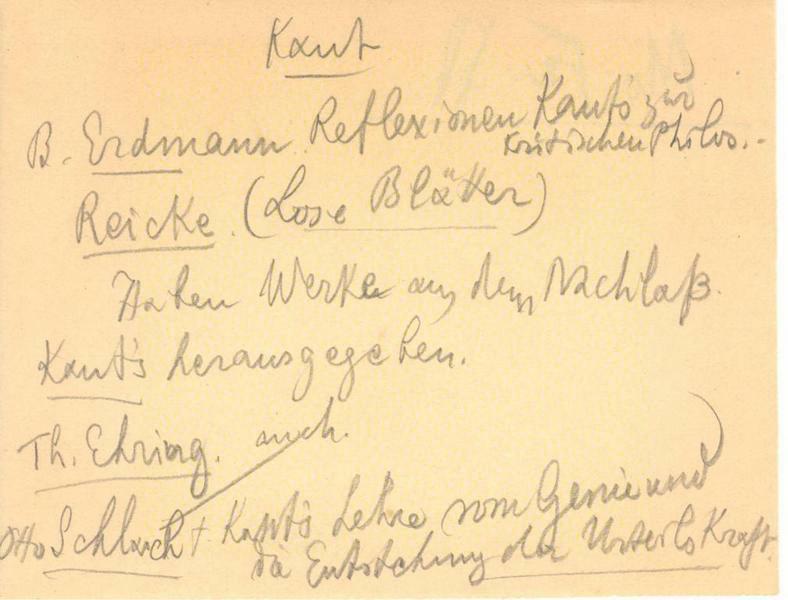 Kant
B. Erdmann Reflexionen Kant's zur
Kritischen Philos.-
Reicke. (Lose Blätter)
Haben Werke aus dem Nachlaß
Kant's herausgegeben.
Th. Ehring. auch.
Otto Schlapp + Kant's Lehre vom Genie und
die Entstehung der Urteils Kraft.